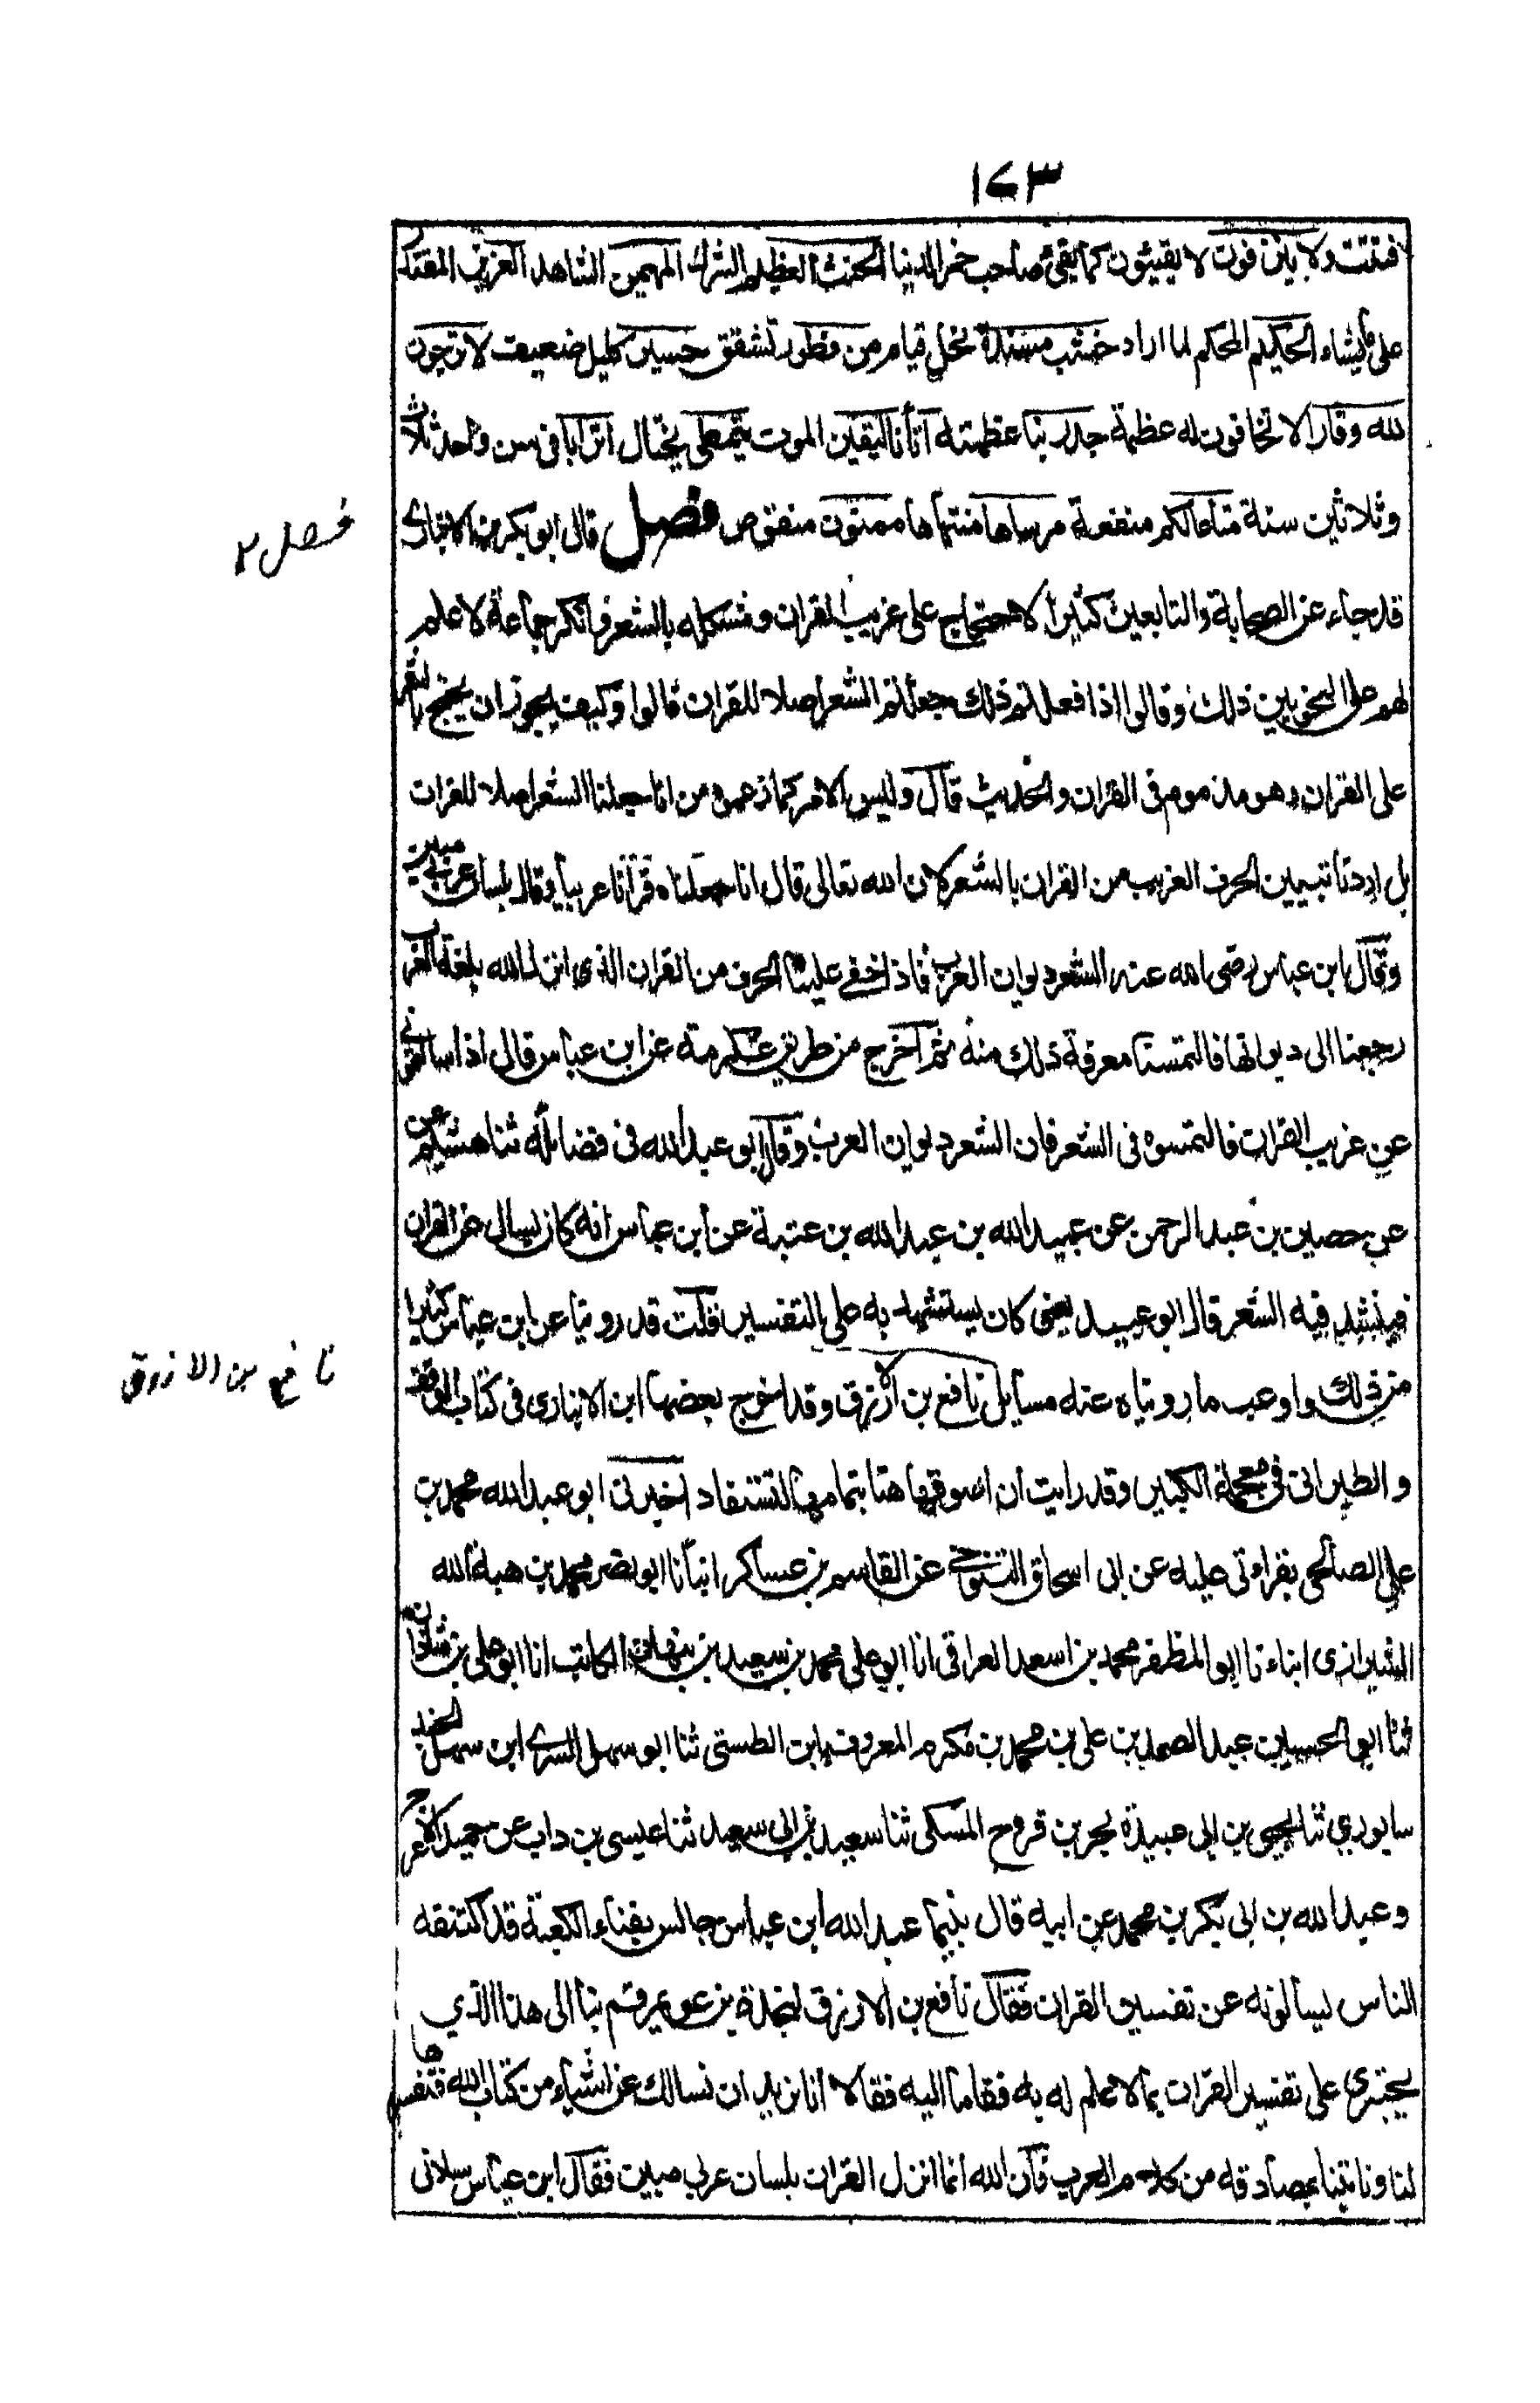 ١٧٣
فتتت ولا ينزفون لا يقيئون كما يقئ صاحب خمر الدنيا الحنث العظيم الشرك المهيمن الشاهد العزيز المقتدر
على ما يشاء الحكيم المحكم لما اراد خشب مسندة نخل قيام من فطور تشقق حسير كليل ضعيف لا ترجون
لله وقارا لا تخافون له عظمة جد ربنا عظمته اتانا اليقين الموت يتمطى يختال اترابا فى سن واحد ثلاث
وثلاثين سنة متاعا لكم منفعة مرساها منتهاها ممنون منقوص فصل قال ابو بكر بن الانبارى
فصل ٢
قد جاء عن الصحابة والتابعين كثيرا الاحتجاج على غريب القران ومشكله بالشعر وانكر جماعة لا علم
لهم على النحويين ذلك وقالوا اذا فعلتم ذلك جعلتم الشعر اصلا للقران قالوا وكيف يجوز ان يحتج بالشعر
على القران وهو مذموم فى القران والحديث قال وليس الامر كما زعموه من انا جعلنا الشعر اصلا للقران
بل اردنا تبيين الحرف الغريب من القران بالشعر لان الله تعالى قال انا جعلناه قرانا عربيا وقال بلسان عربي مبين
وقال ابن عباس رضى الله عنه الشعر ديوان العرب فاذا خفى علينا الحرف من القران الذى انزله الله بلغة العرب
رجعنا الى ديوانها فالتمسنا معرفة ذلك منه ثم اخرج من طريق عكرمة عن ابن عباس قال اذا سالتمونى
عن غريب القران فالتمسوه فى الشعر فان الشعر ديوان العرب وقال ابو عبد الله فى فضائله ثنا هشيم عن
عن حصين بن عبد الرحمن عن عبيد الله بن عبد الله بن عتبة عن ابن عباس انه كان يسال عن القران
فينشد فيه الشعر قال ابو عبيد يعنى كان يستشهد به على التفسير قلت قد روينا عن ابن عباس كثيرا
من ذلك واوعب ما رويناه عنه مسايل نافع بن الازرق وقد اخرج بعضها ابن الانبارى فى كتاب الوقف
نافع بن الازرق
والطبرانى فى معجمه الكبير وقد رايت ان اسوقها هنا بتمامها لتستفاد اخبرنى ابو عبد الله محمد بن
على الصالحى بقراءتى عليه عن ابى اسحاق التنوخى عن القاسم بن عساكر انبانا ابو نصر محمد بن هبة الله
الشيرازى ابناءنا ابو المظفر محمد بن اسعد العراقى انا ابو على محمد بن سعيد بن بنهان الكاتب انا ابو على بن شاذان
ثنا ابو الحسين عبد الصمد بن على بن محمد بن مكرم المعروف بابن الطستى ثنا ابو سهل السرى ابن سهل الجند
سابورى ثنا يحيى بن ابى عبيدة بحر بن فروح المسكى ثنا سعيد بن ابى سعيد ثنا عيسى بن داب عن حميد الاعرج
وعبد الله بن ابى بكر بن محمد عن ابيه قال بينما عبد الله ابن عباس جالس بفناء الكعبة قد اكتنفه
الناس يسالونه عن تفسير القران فقال نافع بن الازرق لنجدة بن عويمر قم بنا الى هذا الذي
يجترى على تفسير القران بما لا علم له به فقاما اليه فقالا انا نريد ان نسالك عن اشياء من كتاب الله فتفسرها
لنا وتاتينا بمصادقه من كلام العرب فان الله انما انزل القران بلسان عربى مبين فقال ابن عباس سلانى